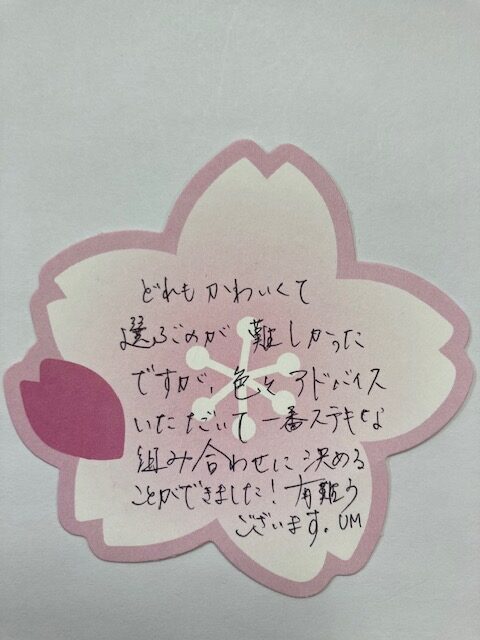 どれもかわいくて
選ぶのが難しかった
ですが、色をアドバイス
いただいて一番ステキな
組み合わせに決める
ことができました！有難う
ございます。UM